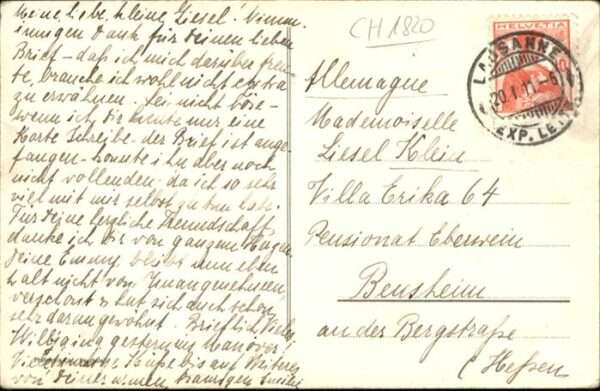 Meine liebe, kleine Liesel! Nimm
innigen Dank für Deinen lieben
Brief - daß ich mich darüber freu-
te, brauche ich wohl nicht extra
zu erwähnen. Sei nicht böse -
wenn ich Dir heute nur eine
Karte schreibe - der Brief ist ange-
fangen - konnte ihn aber noch
nicht vollenden, da ich so sehr
viel mit mir selbst zu tun habe.
Für Deine herzliche Freundschaft
danke ich Dir von ganzem
Deine Emmy bleibt nun eben
halt nicht von Unangenehmem
verschont & hat sich auch schon
sehr daran gewöhnt. Brieflich
gestern
Küße bis auf Weiteres
von Deiner armen, traurigen
CH 1820
HELVETIA
LAUSANNE
20.I.11.-6
EXP. LETT.
Allemagne
Mademoiselle
Liesel Klein
Villa Erika 64
Pensionat Eberwein
Bensheim
an der Bergstraße
(Hessen